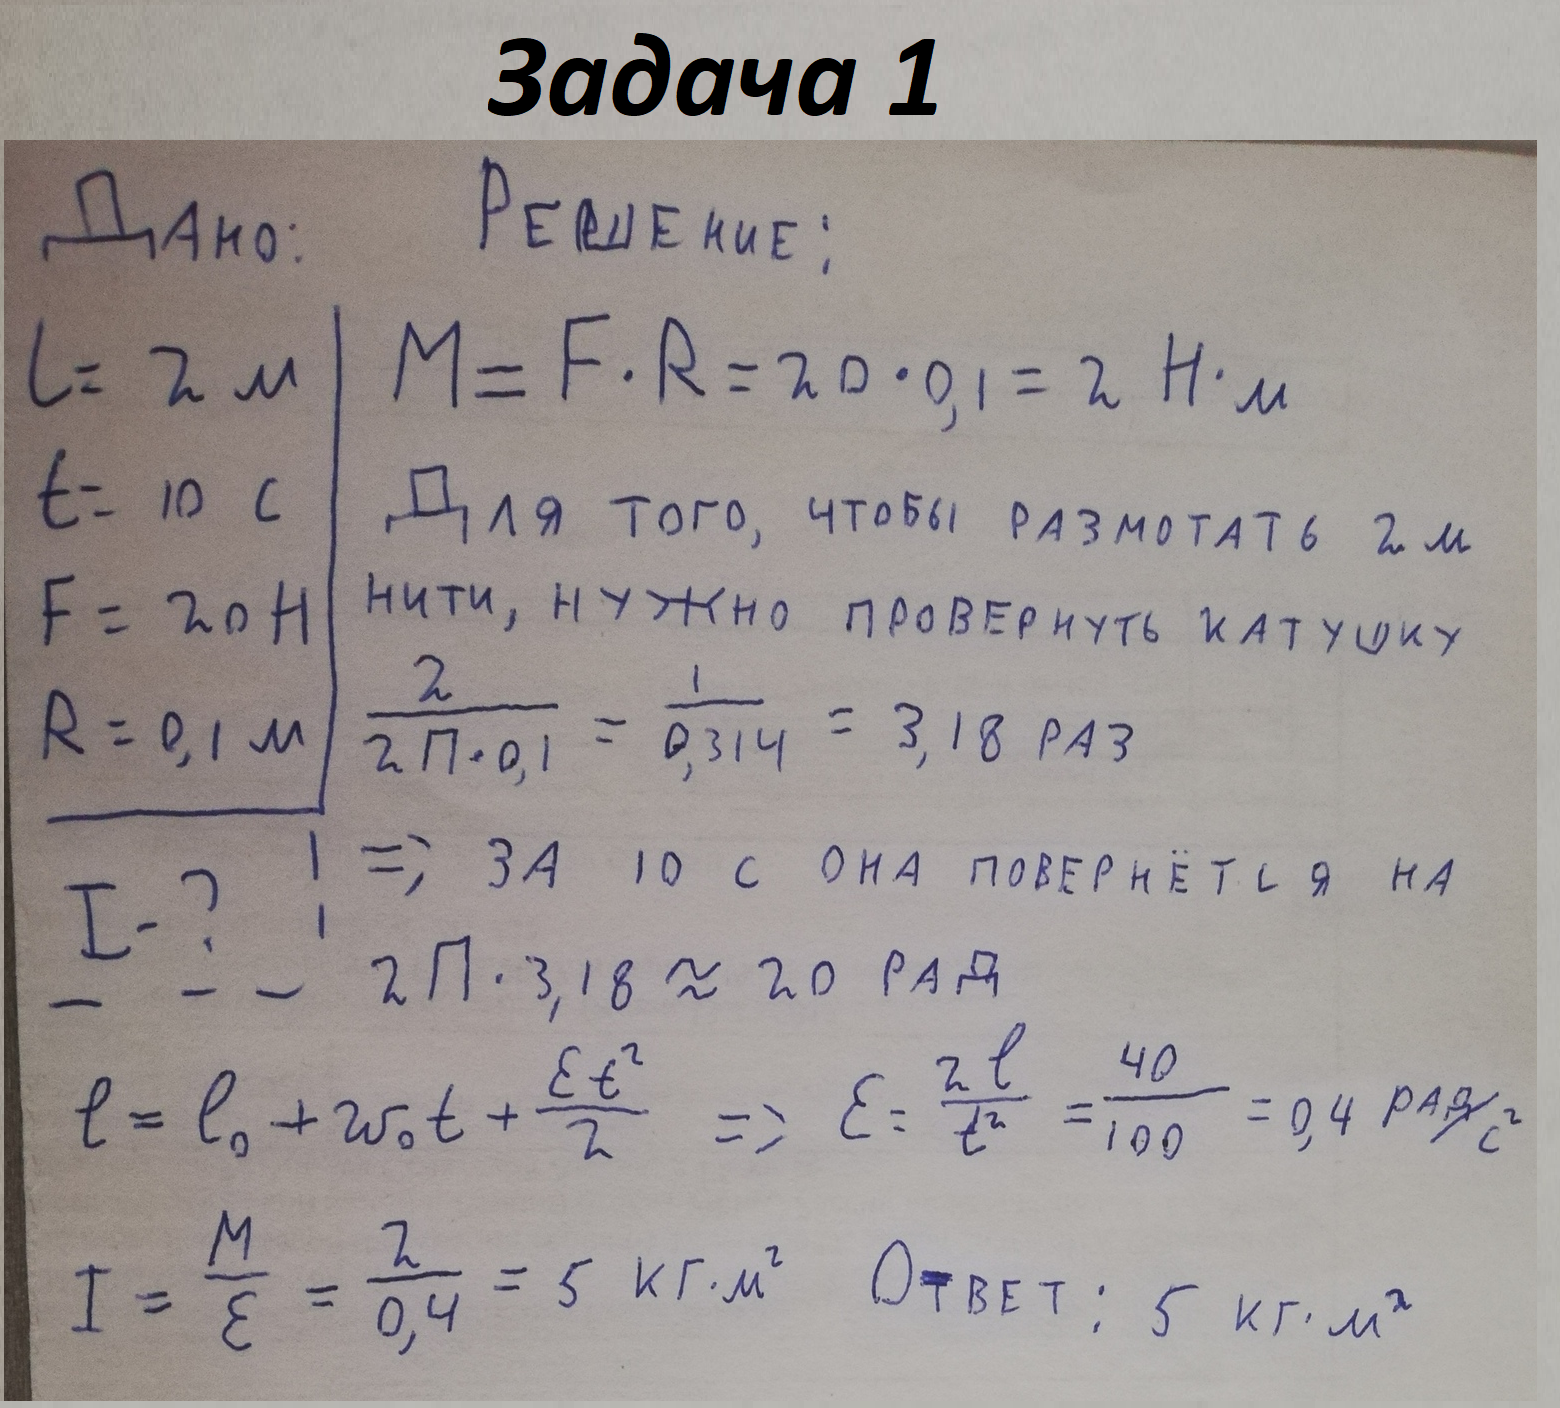 Задача 1
Дано: Решение:
l = 2 м M = F · R = 20 · 0,1 = 2 Н·м
t = 10 с Для того, чтобы размотать 2 м
F = 20 Н нити, нужно провернуть катушку
R = 0,1 м 2/(2π·0,1) = 1/0,314 = 3,18 раз
I - ? => за 10 с она повернётся на
2π · 3,18 ≈ 20 рад
l = l₀ + ω₀t + εt²/2 => ε = 2l/t² = 40/100 = 0,4 рад/с²
I = M/ε = 2/0,4 = 5 кг·м² Ответ: 5 кг·м²